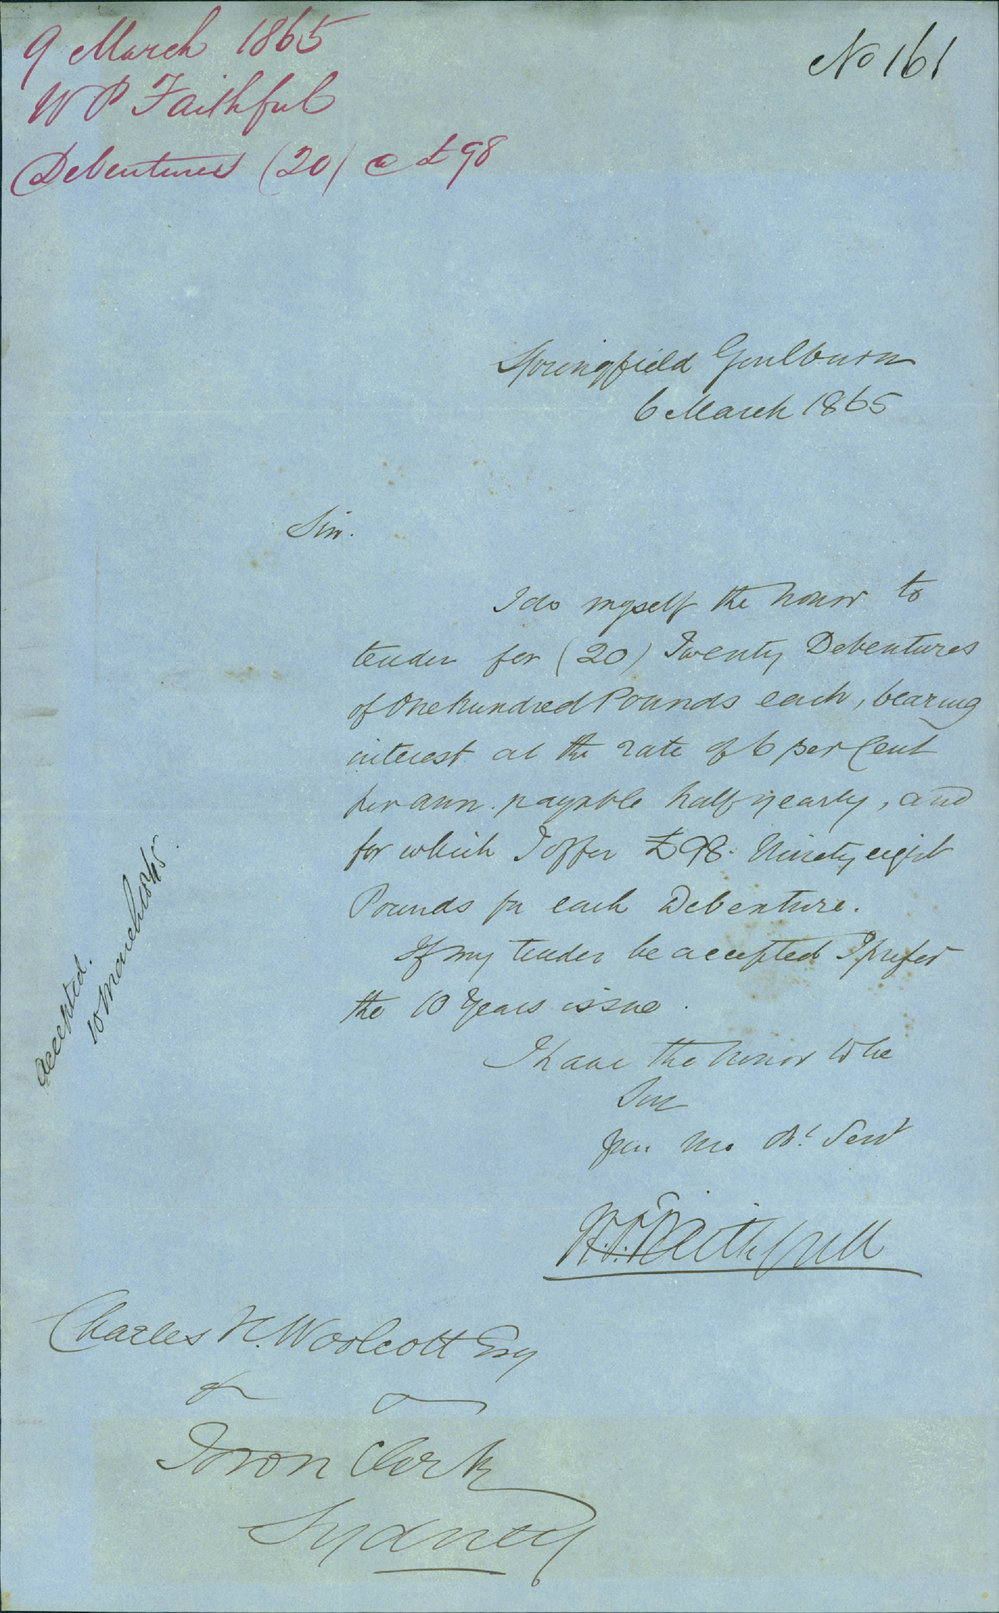 9 March 1865
W P Faithful
Debentures (20) @ £98
No 161
Springfield Goulburn
6 March 1865
Sir.
I do myself the honor to
tender for (20) Twenty Debentures
of One hundred Pounds each, bearing
interest at the rate of 6 per Cent
per ann. payable half yearly, and
for which I offer £98. Ninety eight
Pounds for each Debenture.
If my tender be accepted I prefer
the 10 Years issue.
I have the honor to be
Sir
Your Mo. Obt. Servt
W.P. Faithfull
accepted.
10 March 1865.
Charles H. Woolcott Esq
Town Clerk
Sydney